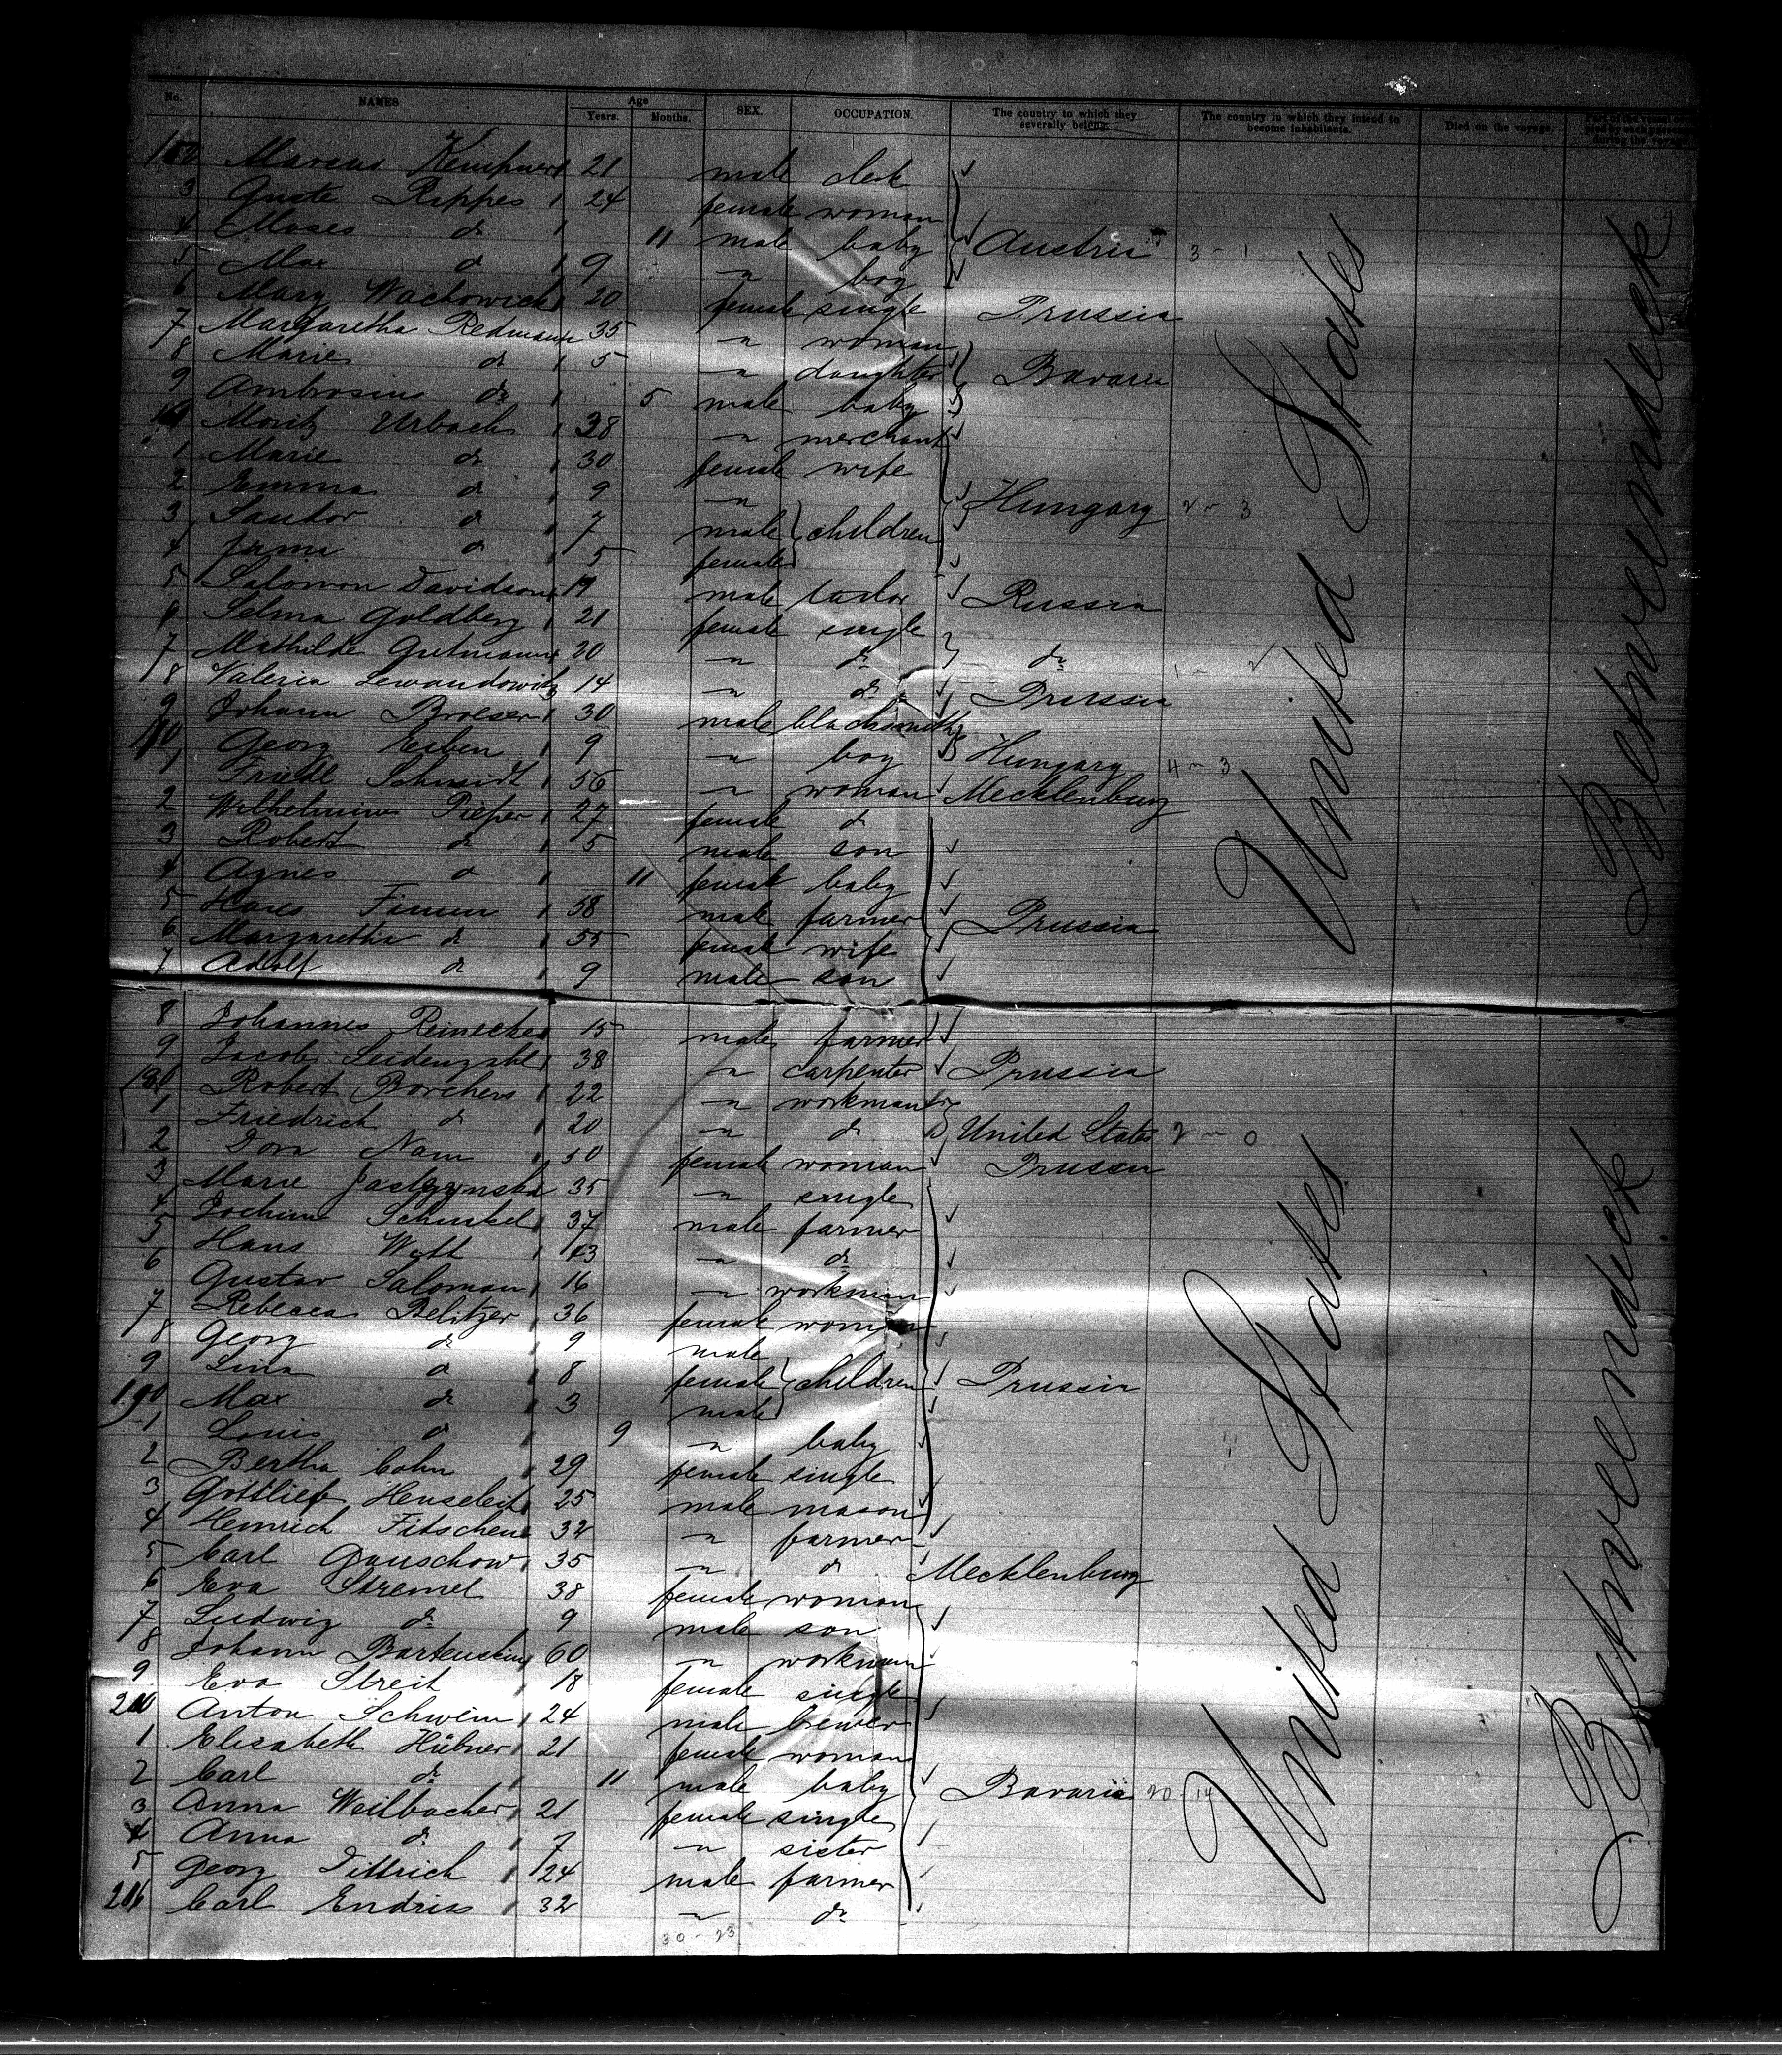 No. NAMES Age Years. Months. SEX. OCCUPATION. The country to which they severally belong. The country in which they intend to become inhabitants. Died on the voyage. Part of the vessel occupied by each passenger during the voyage
Marcus 21 male clerk
3 Guste Rippes 24 female woman
4 Moses do 11 male baby Austria 3 - 1
5 Max do 9 " boy
6 Mary Wachowich 20 female single Prussia
7 Margaretha Redmann 35 " woman
8 Marie do 5 " daughter Bavaria
9 Ambrosius do 5 male baby
Moritz Urbach 38 " merchant
1 Marie do 30 female wife
2 Emma do 9 " Hungary 2 - 3
3 Sandor do 7 male children
4 do 5 female
5 Salomon Davidson 19 male tailor Russia
6 Selma Goldberg 21 female single
7 Mathilde Gutmann 20 " do do
8 Valeria Lewandowitz 14 " do Prussia
9 Johann Broeser 30 male blacksmith
Georg Erben 9 " boy Hungary 4 - 3
1 Friedl Schmidt 56 " woman Mecklenburg
2 Wilhelmine Pieper 27 female do
3 Robert do 5 male son
4 Agnes do 11 female baby
5 Hans 58 male farmer Prussia
6 Margaretha do 55 female wife
7 Adolf do 9 male son
8 Johannes Reinecke 15 male farmer
9 Jacob 38 " carpenter Prussia
Robert Borchers 22 " workman
1 Friedrich do 20 " do United States 2 - 0
2 Dora Nam female woman Prussia
3 Marie 35 " single
4 Jochim Schinkel 37 male farmer
5 Hans Witt " do
6 Gustav Saloman 16 " workman
7 Rebecca Belitzer 36 female woman
8 Georg do 9 male
9 Lina do 8 female children Prussia
190 Max do 3 male
1 Louis do 9 " baby
2 Bertha Cohn 29 female single
3 Gottlieb Henseleit 25 male mason
4 Heinrich Fitschen 32 " farmer
5 Carl Ganschow 35 " do Mecklenburg
6 Eva Stremel 38 female woman
7 Ludwig do 9 male son
8 Johann Bartenstein 60 " workman
9 Eva Streit 18 female single
200 Anton Schwein 24 male brewer
1 Elisabeth Hübner 21 female woman
2 Carl do 11 male baby Bavaria 20 - 14
3 Anna Weilbacher 21 female single
4 Anna do 7 " sister
5 Georg Dittrich 24 male farmer
206 Carl Endriss 32 " do
30 - 23
United States
Betweendeck
United States
Betweendeck